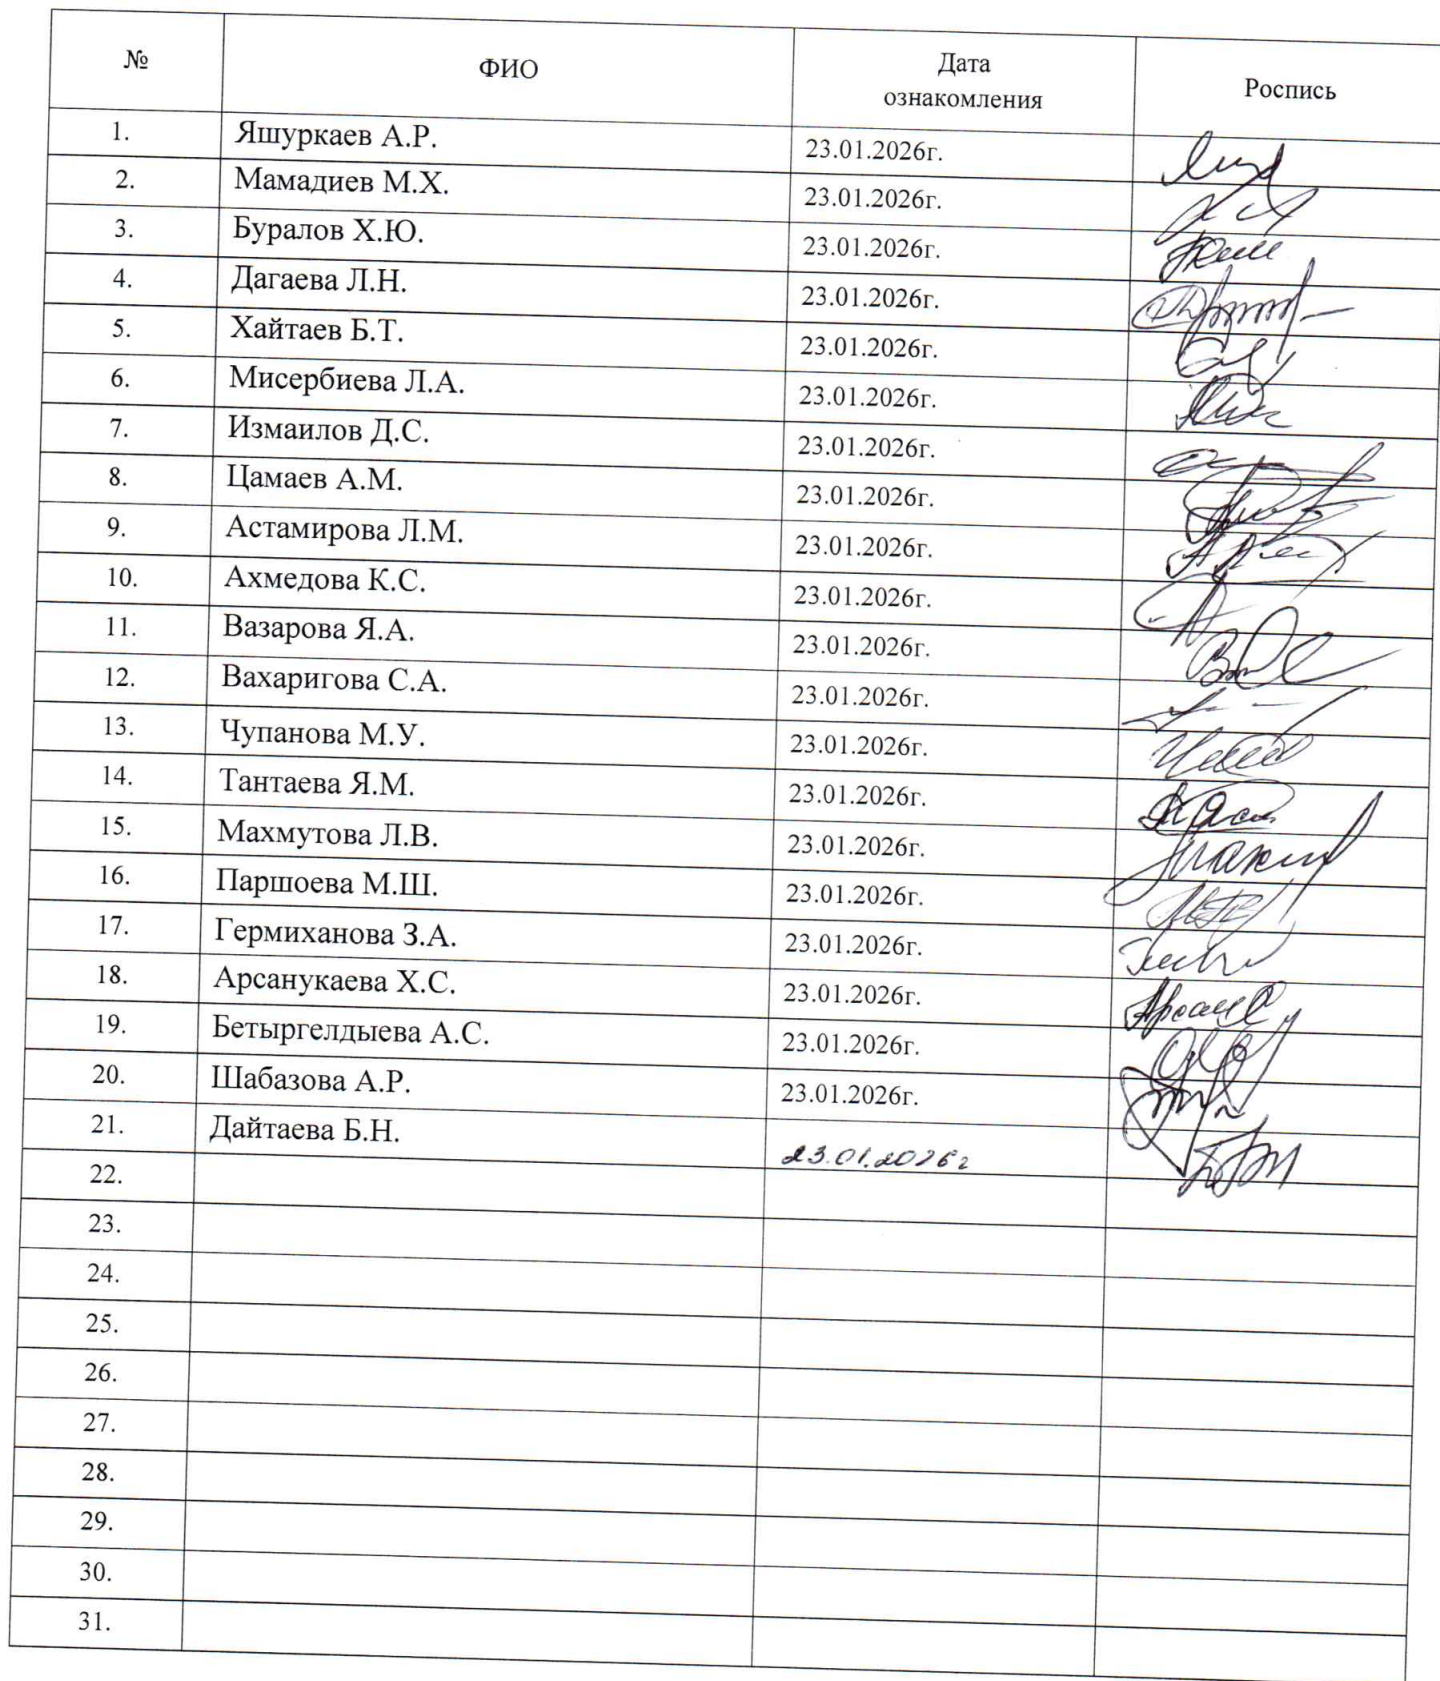 № ФИО Дата ознакомления Роспись
1. Яшуркаев А.Р. 23.01.2026г.
2. Мамадиев М.Х. 23.01.2026г.
3. Буралов Х.Ю. 23.01.2026г.
4. Дагаева Л.Н. 23.01.2026г.
5. Хайтаев Б.Т. 23.01.2026г.
6. Мисербиева Л.А. 23.01.2026г.
7. Измаилов Д.С. 23.01.2026г.
8. Цамаев А.М. 23.01.2026г.
9. Астамирова Л.М. 23.01.2026г.
10. Ахмедова К.С. 23.01.2026г.
11. Вазарова Я.А. 23.01.2026г.
12. Вахаригова С.А. 23.01.2026г.
13. Чупанова М.У. 23.01.2026г.
14. Тантаева Я.М. 23.01.2026г.
15. Махмутова Л.В. 23.01.2026г.
16. Паршоева М.Ш. 23.01.2026г.
17. Гермиханова З.А. 23.01.2026г.
18. Арсанукаева Х.С. 23.01.2026г.
19. Бетыргелдыева А.С. 23.01.2026г.
20. Шабазова А.Р. 23.01.2026г.
21. Дайтаева Б.Н. 23.01.2026г
22.
23.
24.
25.
26.
27.
28.
29.
30.
31.